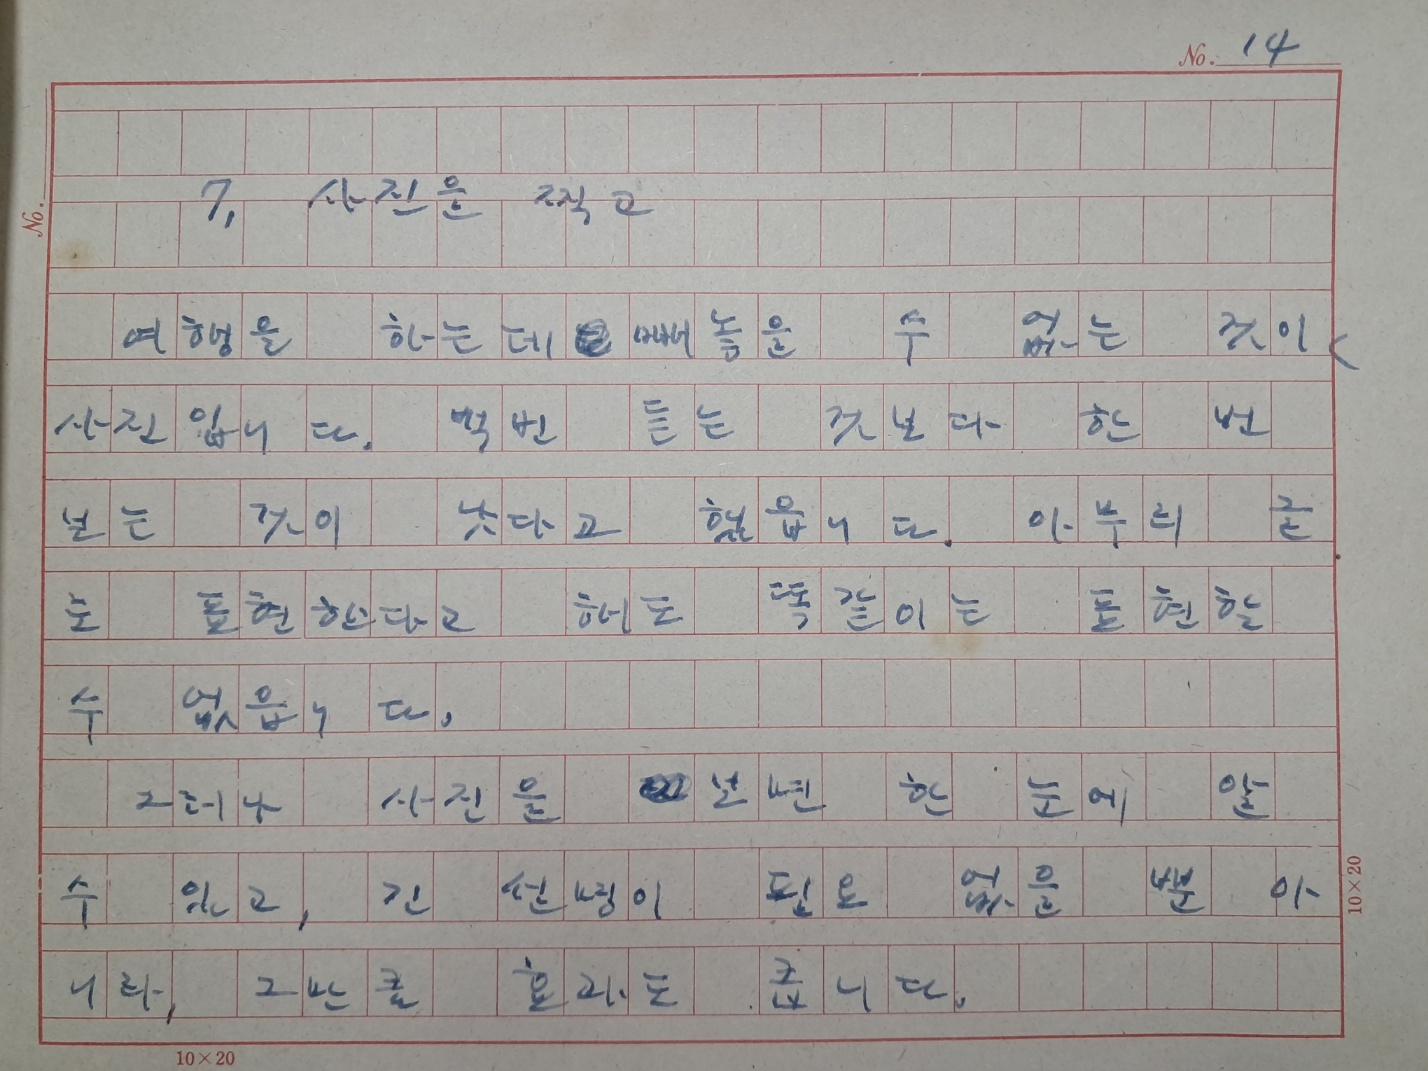 No. 14
No.
7, 사진을 찍고
여행을 하는데 빼놓을 수 없는 것이
사진입니다. 백번 듣는 것보다 한 번
보는 것이 낫다고 했읍니다. 아무리 글
로 표현한다고 해도 똑같이는 표현할
수 없읍니다.
그러나 사진을 보면 한 눈에 알
수 있고, 긴 설명이 필요 없을 뿐 아
니라, 그만큼 효과도 큽니다.
10×20
10×20